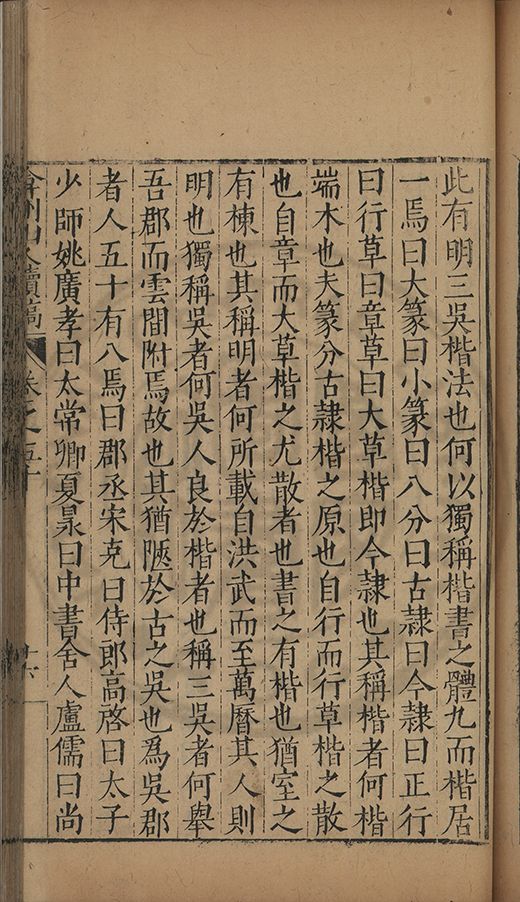 此有明三吳楷法也何以獨稱楷書之體九而楷居
一焉曰大篆曰小篆曰八分曰古隷曰今隷曰正行
曰行草曰章草曰大草楷即今隷也其稱楷者何楷
端木也夫篆分古隷楷之原也自行而行草楷之散
也自章而大草楷之尤散者也書之有楷也猶室之
有棟也其稱明者何所載自洪武而至萬曆其人則
明也獨稱吳者何吳人良於楷者也稱三吳者何舉
吾郡而雲間附焉故也其猶陿於古之吳也為吳郡
者人五十有八焉曰郡丞宋克曰侍郎高啓曰太子
少師姚廣孝曰太常卿夏㫤曰中書舍人盧儒曰尚
弇州山人續稿
卷之五十
十六